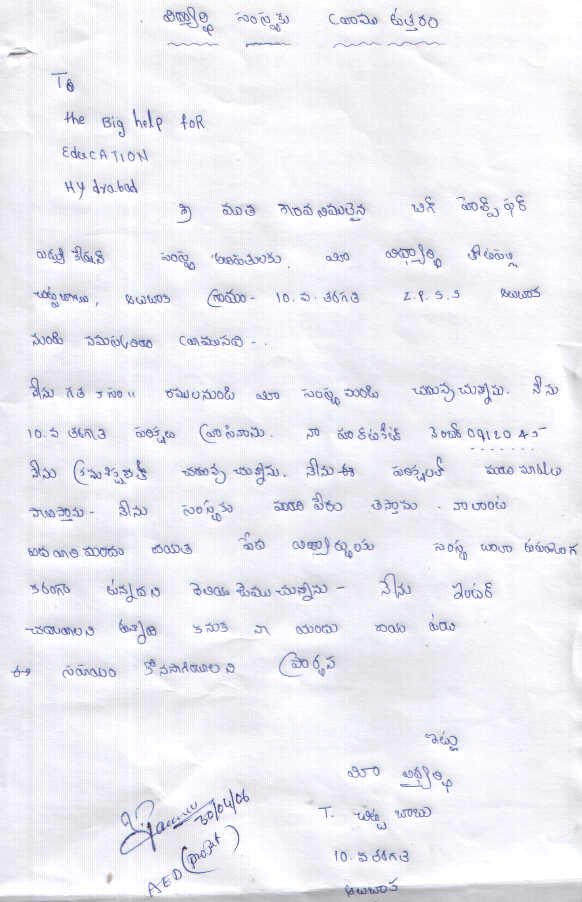 విద్యార్థి సంస్థకు వ్రాయు ఉత్తరం
To
the Big help foR
EducATION
Hydrabad
శ్రీ మతి గౌరవనియులైన బిగ్ హెల్ప్ ఫర్
ఎడ్యుకేషన్ సంస్థ అధిపతులకు. మీ విద్యార్థి
చిట్టిబాబు, ఆలుబాక గ్రామం - 10. వ. తరగతి Z.P.S.S ఆలుబాక
నుండి నమస్కరించి వ్రాయునది -.
నేను గత సం॥ రముల నుండి మీ సంస్థ నుండి చదువుచున్నాను. నేను
10.వ తరగతి పరీక్షలు వ్రాసినాను. నా హాల్‌టికెట్ నెంబర్ 0912045
నేను క్రమశిక్షణతో చదువు చున్నాను. నేను ఈ పరీక్షలలో మంచి మార్కులు
సాధిస్తాను - నేను సంస్థకు మంచి పేరు తెస్తాను. నాలాంటి
పేద విద్యార్థులకు సంస్థ చాలా ఉపయోగ
కరంగా ఉన్నదని తెలియజేయుచున్నాను - నేను ఇంటర్
చదవాలని ఉన్నది కనుక నా యందు దయ ఉంచి
ఈ సహాయం కొనసాగించాలని ప్రార్థన
ఇట్లు
మీ విద్యార్థి
T. చిట్టి బాబు
10. వ తరగతి
ఆలుబాక
30/04/06
AED (project)